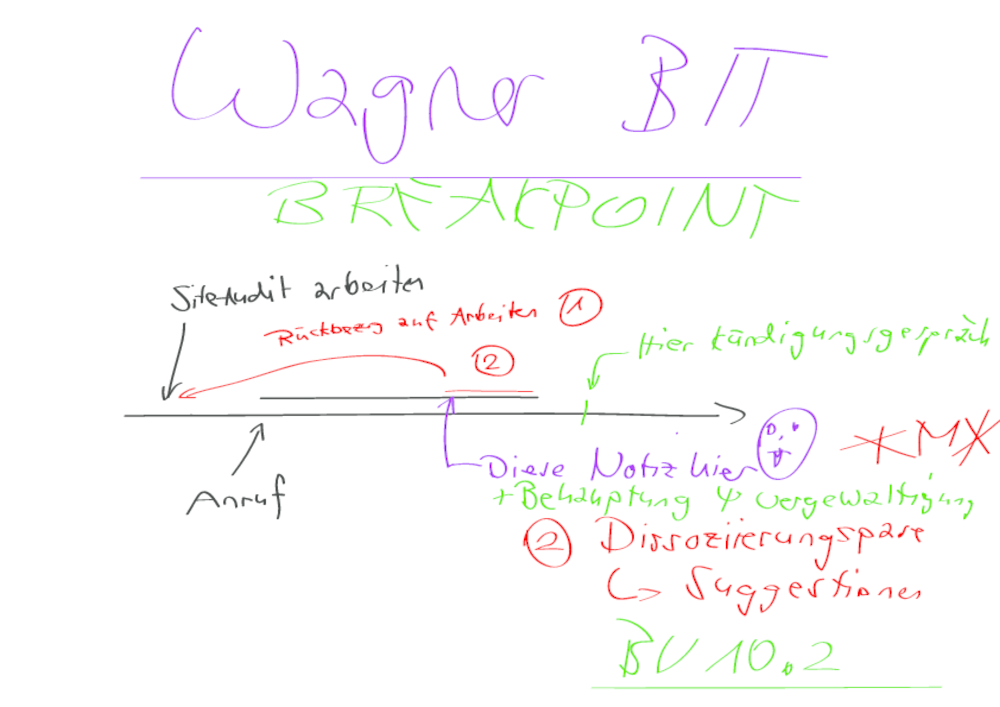 Wagner BIT
BREAKPOINT
SiteAudit arbeiten
Rückbezug auf Arbeiten 1
2
Hier Kündigungsgespräch
Diese Notiz hier
Anruf
+ Behauptung ψ vergewaltigung
2 Dissoziierungspare
↳ Suggestionen
BV 10.2